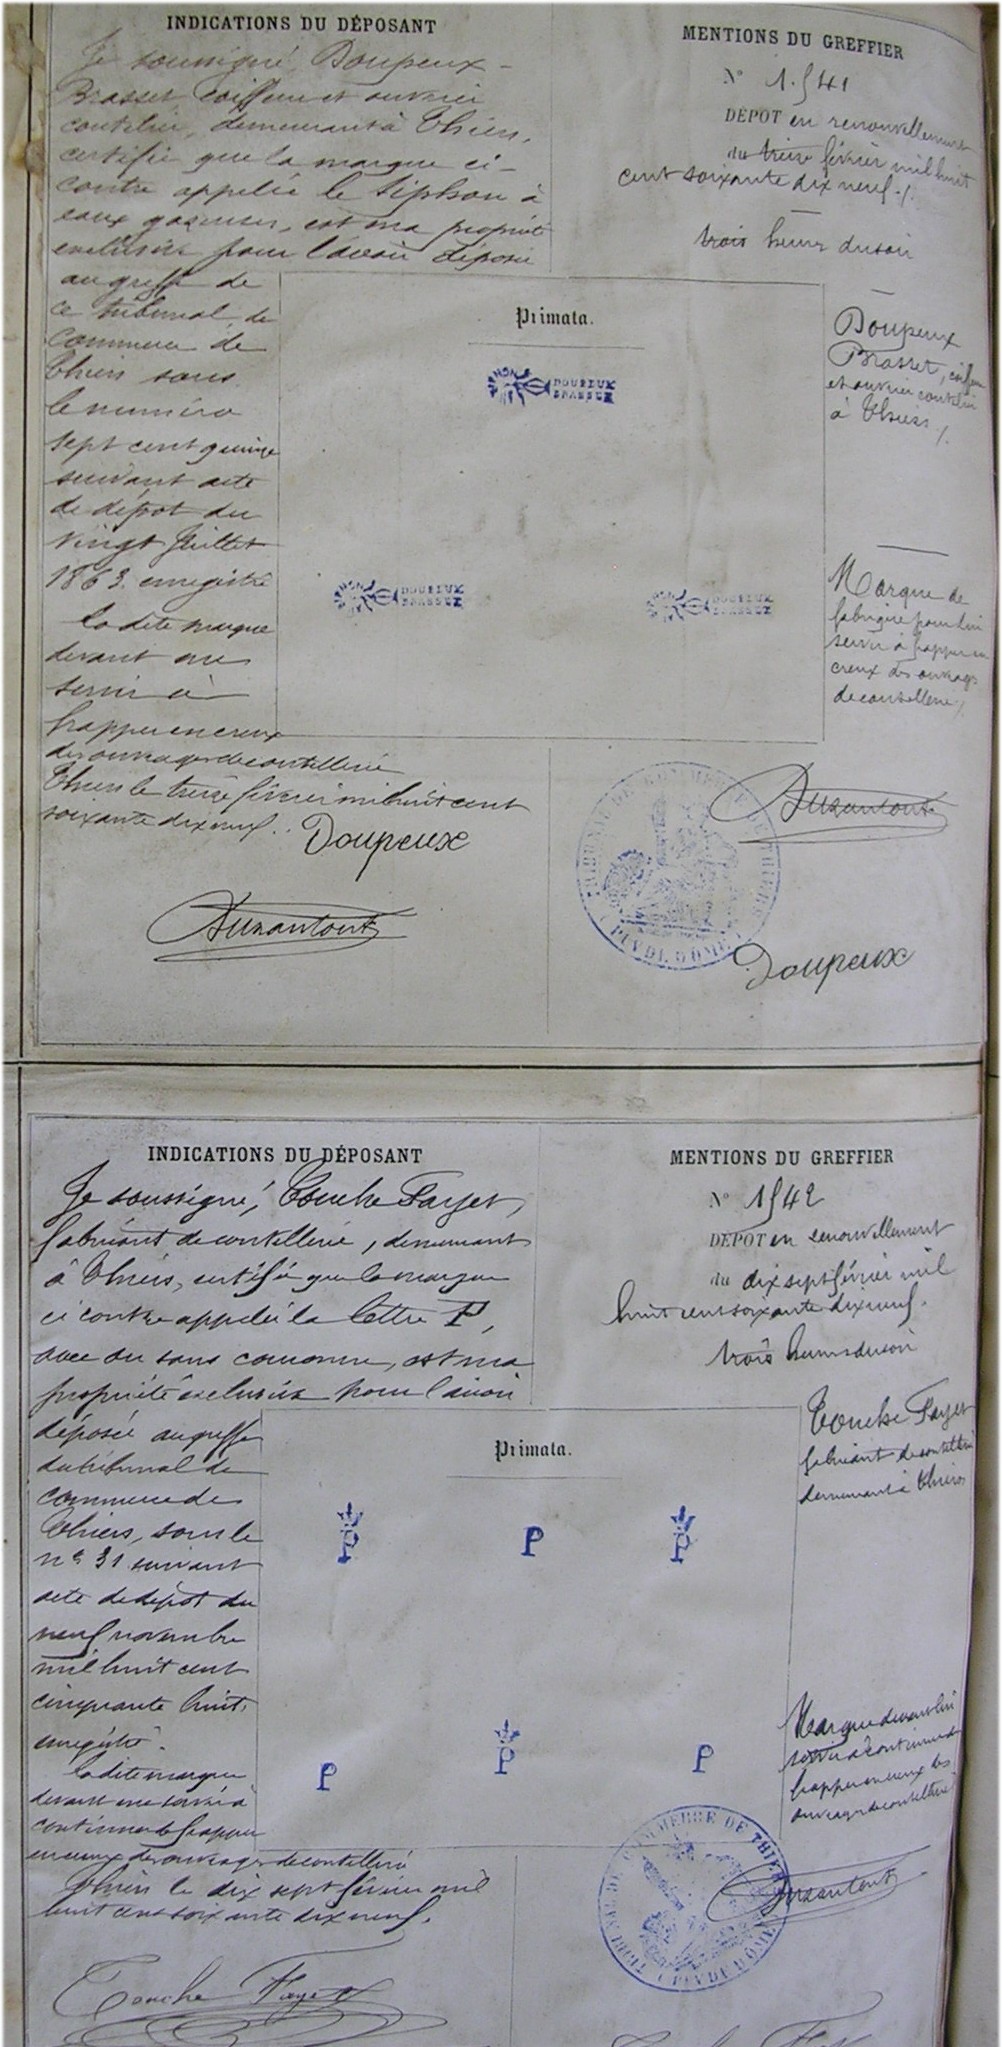 INDICATIONS DU DÉPOSANT
Je soussigné, Doupeux-
Brasset, coiffeur et ouvrier
coutelier, demeurant à Thiers,
certifie que la marque ci-
contre appelée le Siphon à
eaux gazeuses, est ma propriété
exclusive pour l'avoir déposée
au greffe de
ce tribunal de
commerce de
Thiers sous
le numéro
sept cent quinze
suivant acte
de dépôt du
vingt Juillet
1863. enregistré
La dite marque
devant me
servir à
frapper en creux
des ouvrages de coutellerie
Thiers le treize février mil huit cent
soixante dix neuf.
Doupeux
MENTIONS DU GREFFIER
N° 1.541
DÉPOT en renouvellement
du treize février mil huit
cent soixante dix neuf./.
trois heures du soir
Primata.
DOUPEUX
BRASSET
DOUPEUX
BRASSET
DOUPEUX
BRASSET
Doupeux
Brasset, coiffeur
et ouvrier coutelier
à Thiers /.
Marque de
fabrique pour lui
servir à frapper en
creux des ouvrages
de coutellerie /.
TRIBUNAL DE COMMERCE DE THIERS
(PUY DE DÔME)
Doupeux
INDICATIONS DU DÉPOSANT
Je soussigné, Touche Fayet,
fabricant de coutellerie, demeurant
à Thiers, certifie que la marque
ci contre appelée la lettre P,
avec ou sans couronne, est ma
propriété exclusive pour l'avoir
déposée au greffe
du tribunal de
commerce de
Thiers, sous le
n° 31 suivant
acte de dépôt du
neuf novembre
mil huit cent
cinquante huit,
enregistré.
La dite marque
devant me servir à
continuer de frapper
en creux des ouvrages de coutellerie
Thiers le dix sept février mil
huit cent soixante dix neuf.
Touche Fayet
MENTIONS DU GREFFIER
N° 1542
DÉPOT en renouvellement
du dix sept février mil
huit cent soixante dix neuf.
trois heures du soir
Primata.
P P P
P P P
Touche Fayet
fabricant de coutellerie
demeurant à Thiers
Marque devant lui
servir à continuer de
frapper en creux des
ouvrages de coutellerie
TRIBUNAL DE COMMERCE DE THIERS
(PUY DE DÔME)